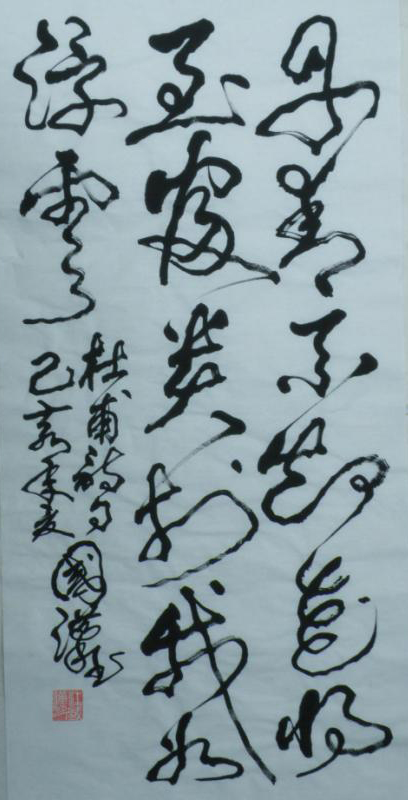 丹青不知老將
至富貴於我如
浮雲
杜甫詩句
己亥年夏國